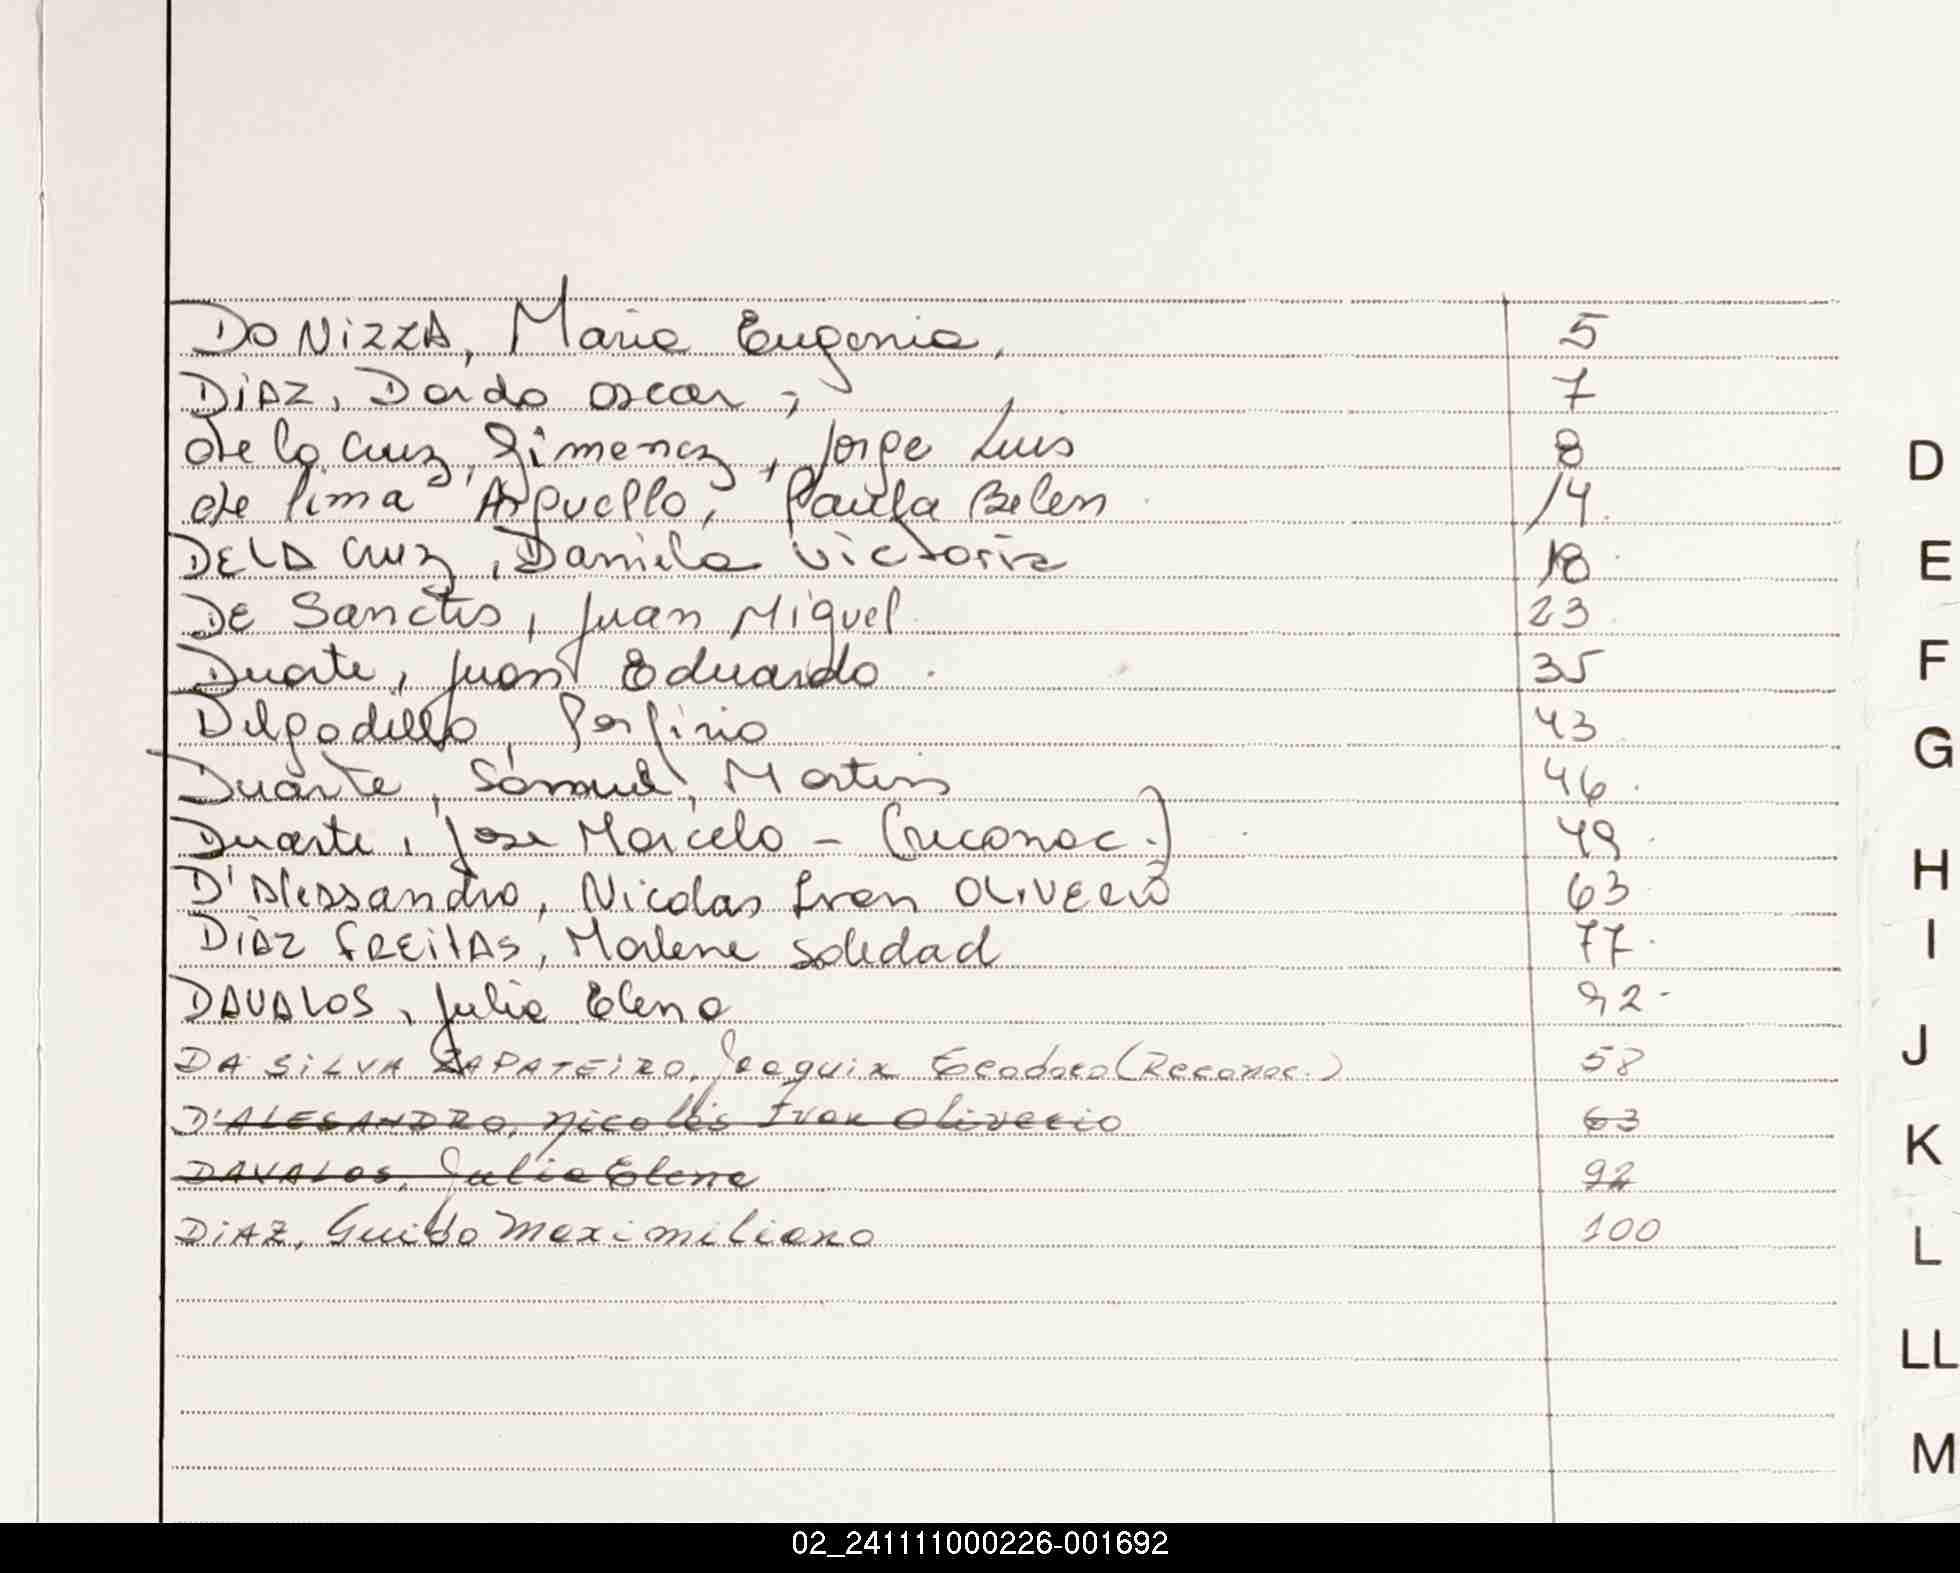 DONIZZA, Maria Eugenia, 5
DiAZ, Dardo oscar, 7
de la cruz, Gimenez, Jorge Luis 8
de lima Arguello, Paula Belen 14
DE LA cruz, Daniela Victoria 18
DE Sanctis, Juan Miguel 23
Duarte, Juan Eduardo 35
Delgadillo, Porfirio 43
Duarte, Samuel, Martin 46
Duarte, Jose Marcelo - (reconoc.) 49
D'Alessandro, Nicolas Ivan OLIVERIO 63
DiAZ FREITAS, Marlene Soledad 77
DAVALOS, Julia Elena 92
DA SILVA ZAPATEIRO, Joaquin (Reconoc.) 58
D'ALESANDRO, Nicolás Ivan Oliverio 63
DAVALOS, Julia Elena 92
DiAZ, Guido Maximiliano 100
D
E
F
G
H
I
J
K
L
LL
M
02_241111000226-001692